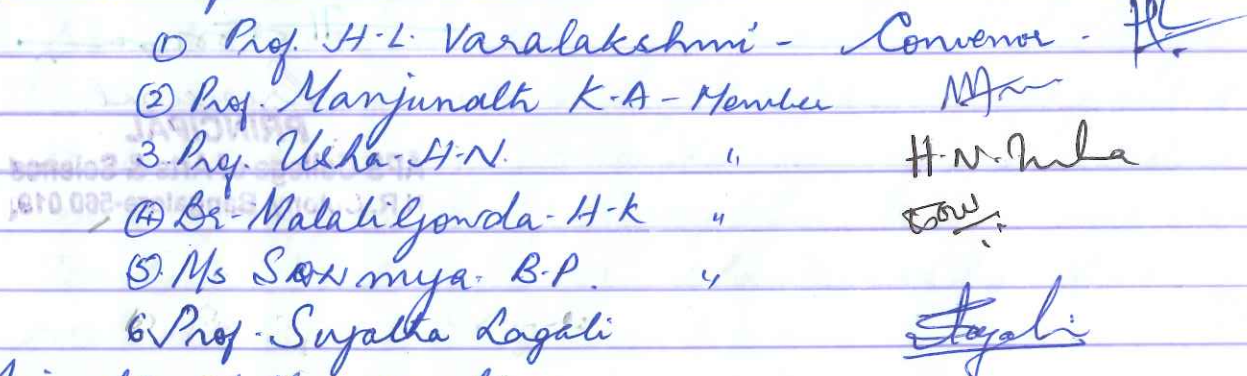 ① Prof. H-L. Varalakshmi - Convenor -
② Prof. Manjunath K-A - Member
3. Prof. Usha-H-N. " H-N. Usha
④ Dr-Malatilgowda-H-K "
⑤ Ms Sowmya. B-P. "
6. Prof. Sujatha Lagali